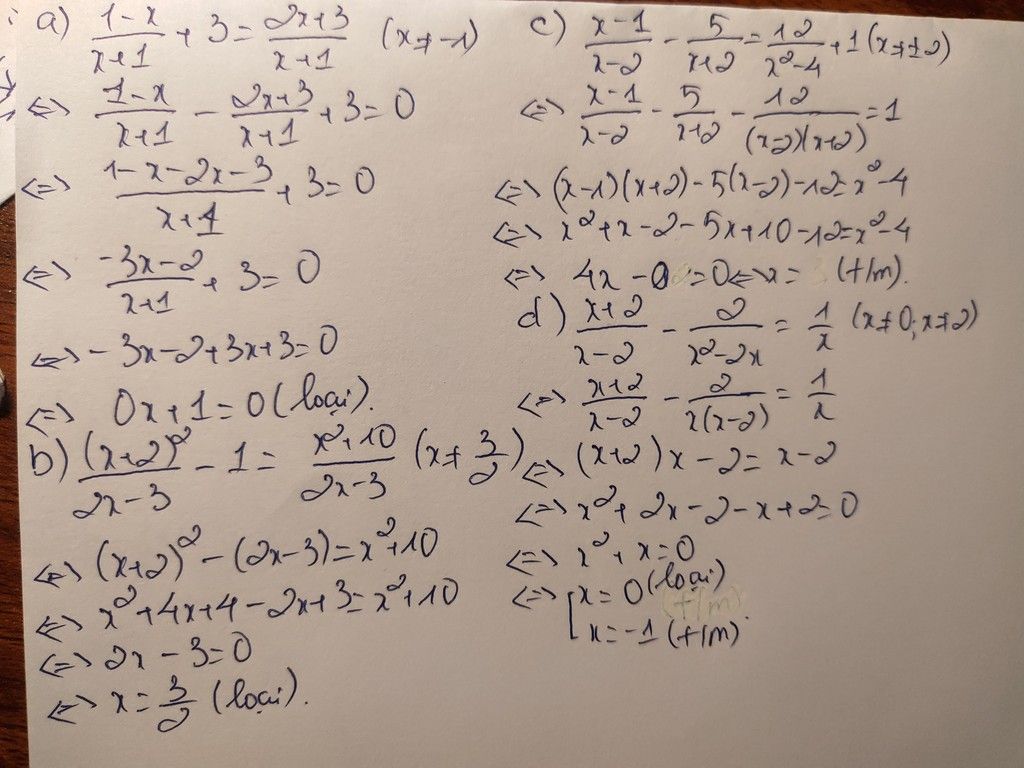 a) (1-x)/(x+1) + 3 = (2x+3)/(x+1) (x ≠ -1)
<=> (1-x)/(x+1) - (2x+3)/(x+1) + 3 = 0
<=> (1-x-2x-3)/(x+1) + 3 = 0
<=> (-3x-2)/(x+1) + 3 = 0
<=> -3x-2+3x+3=0
<=> 0x+1=0 (loại).
b) (x+2)²/(2x-3) - 1 = (x²+10)/(2x-3) (x ≠ 3/2)
<=> (x+2)² - (2x-3) = x²+10
<=> x²+4x+4-2x+3=x²+10
<=> 2x-3=0
<=> x=3/2 (loại).
c) (x-1)/(x-2) - 5/(x+2) = 12/(x²-4) + 1 (x ≠ ±2)
<=> (x-1)/(x-2) - 5/(x+2) - 12/((x-2)(x+2)) = 1
<=> (x-1)(x+2)-5(x-2)-12=x²-4
<=> x²+x-2-5x+10-12=x²-4
<=> 4x-0=0<=>x= (t/m).
d) (x+2)/(x-2) - 2/(x²-2x) = 1/x (x≠0; x≠2)
<=> (x+2)/(x-2) - 2/(x(x-2)) = 1/x
<=> (x+2)x-2=x-2
<=> x²+2x-2-x+2=0
<=> x²+x=0
<=> [x=0 (loại)
x=-1 (t/m).